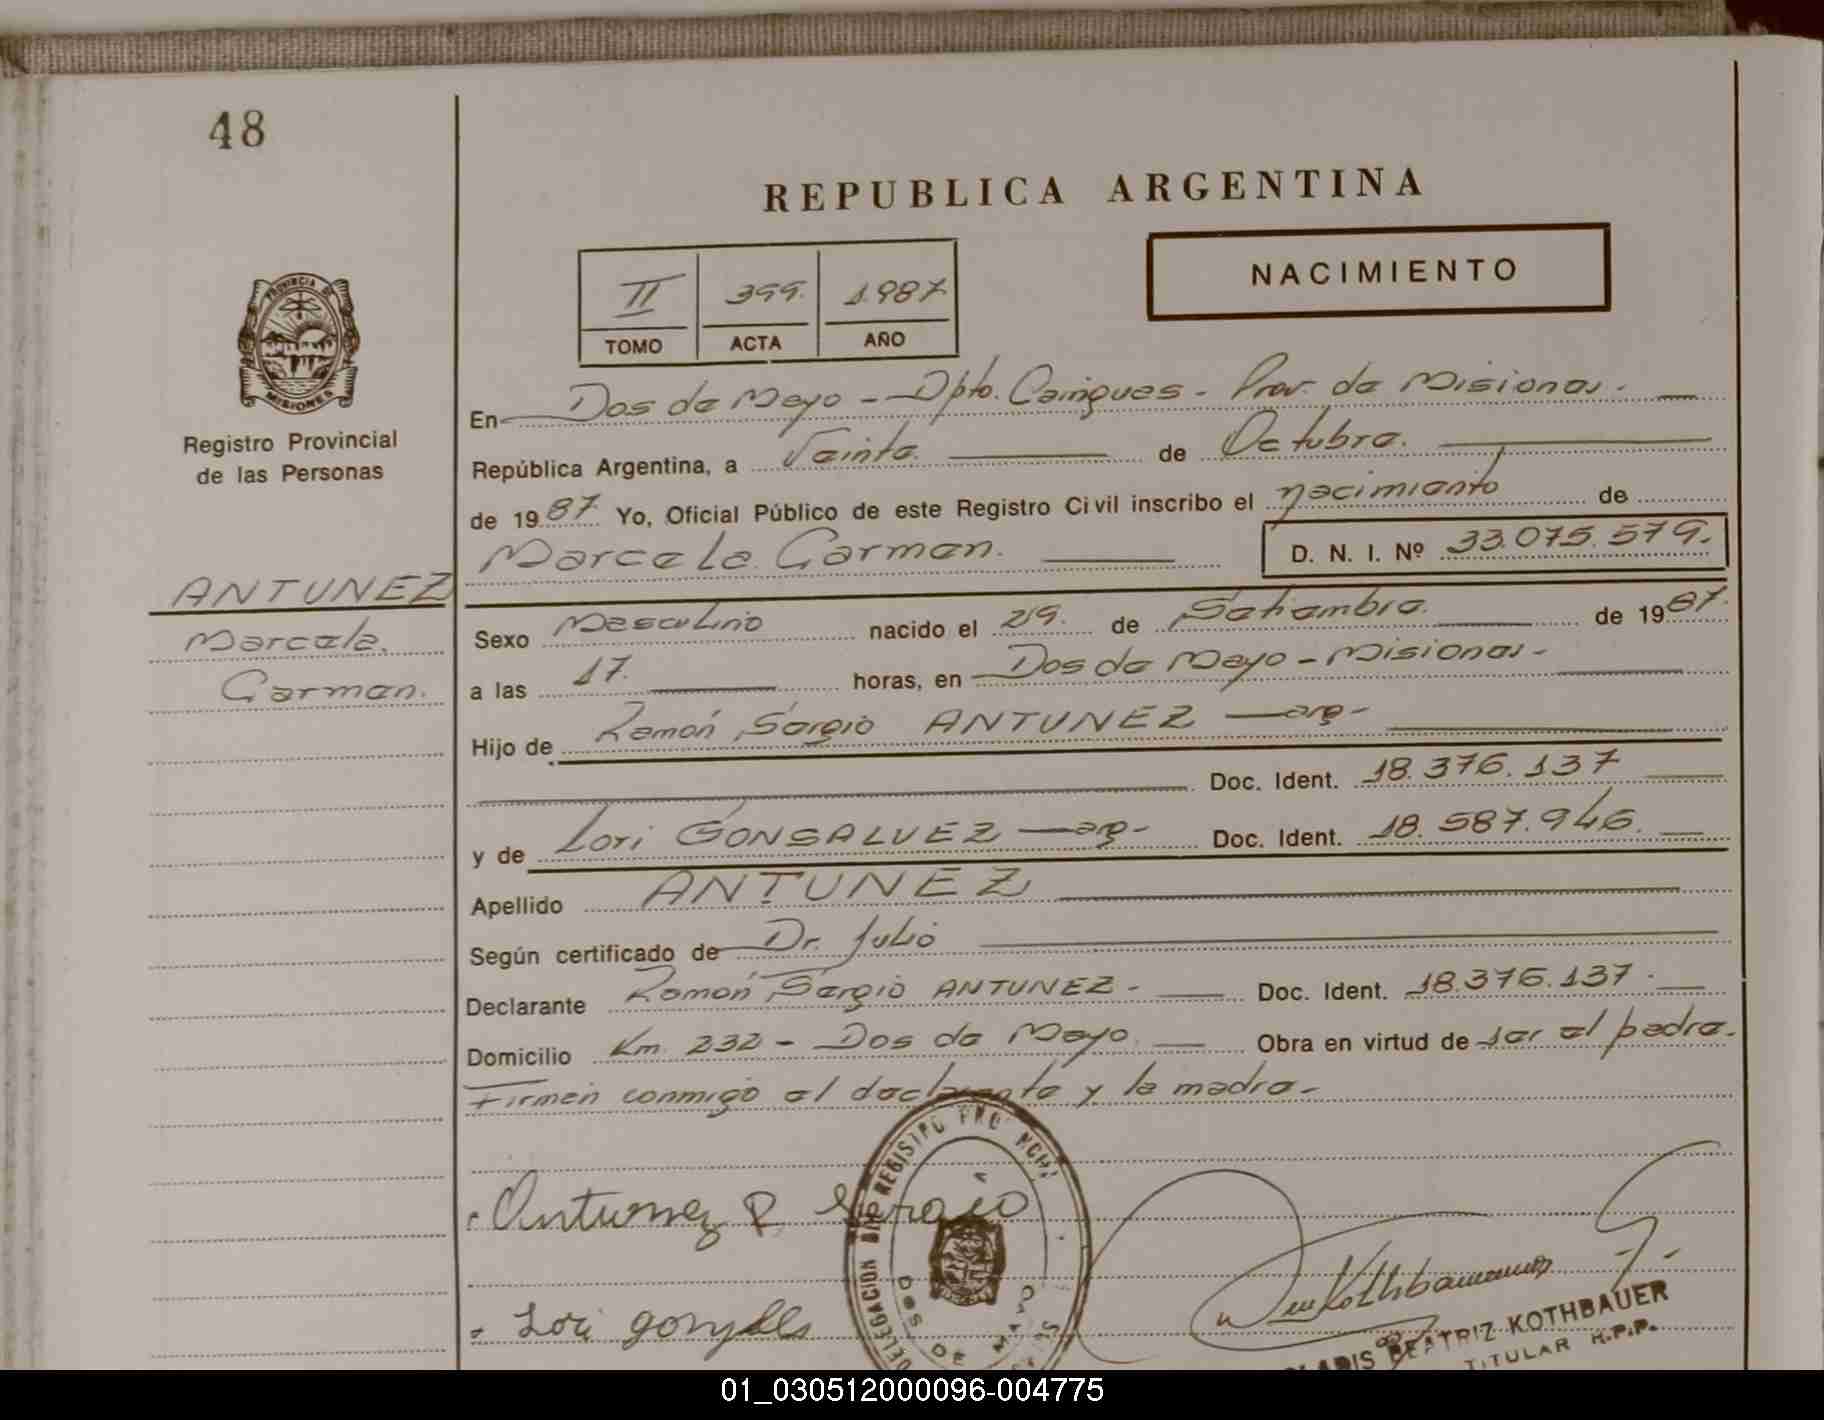 48
REPUBLICA ARGENTINA
NACIMIENTO
II 399. 1.987
TOMO ACTA AÑO
PROVINCIA DE
MISIONES
Registro Provincial
de las Personas
En Dos de Mayo - Dpto. Cainguas - Prov. de Misiones.
República Argentina, a Veinte. de Octubre.
de 1987 Yo, Oficial Público de este Registro Civil inscribo el nacimiento de
Marcela Carmen. D. N. I. Nº 33.075.579.
ANTUNEZ
Marcela.
Carmen.
Sexo Masculino nacido el 29. de Setiembre. de 1987.
a las 17. horas, en Dos de Mayo - Misiones -
Hijo de Ramón Sergio ANTUNEZ - arg -
Doc. Ident. 18.376.137
y de Lori GONSALVEZ - arg - Doc. Ident. 18.587.946.
Apellido ANTUNEZ
Según certificado de Dr. Julio
Declarante Ramón Sergio ANTUNEZ - Doc. Ident. 18.376.137.
Domicilio Km. 232 - Dos de Mayo. Obra en virtud de ser el padre.
Firman conmigo el declarante y la madre -
Antunez R Sergio
DELEGACION REGISTRO
DOS DE MAYO
Lori
Kothbauer
BEATRIZ KOTHBAUER
TITULAR R.P.P.
01_030512000096-004775